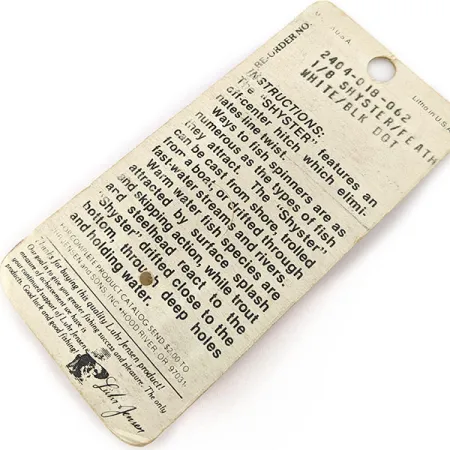 RE-ORDER NO.
2404-018-062
1/8 SHYSTER/FEATH
WHITE/BLK DOT
Litho in U.S.A.
INSTRUCTIONS:
The "SHYSTER" features an
off-center hitch which elimi-
nates line twist.
Ways to fish spinners are as
numerous as the types of fish
they attract. The "Shyster"
can be cast from shore, trolled
from a boat, or drifted through
fast-water streams and rivers.
Warm water fish species are
attracted by surface splash
and skipping action, while trout
and steelhead react to the
"Shyster" drifted close to the
bottom through deep holes
and holding water.
FOR COMPLETE PRODUCT CATALOG SEND $2.00 TO
JENSEN and SONS, INC. • HOOD RIVER, OR 97031
Thanks for buying this quality Luhr Jensen product!
Our goal is to give you greater fishing success and pleasure. The only
measure of achievement we have is
your continued support of Luhr Jensen
products. Good luck and good fishing!
Luhr Jensen